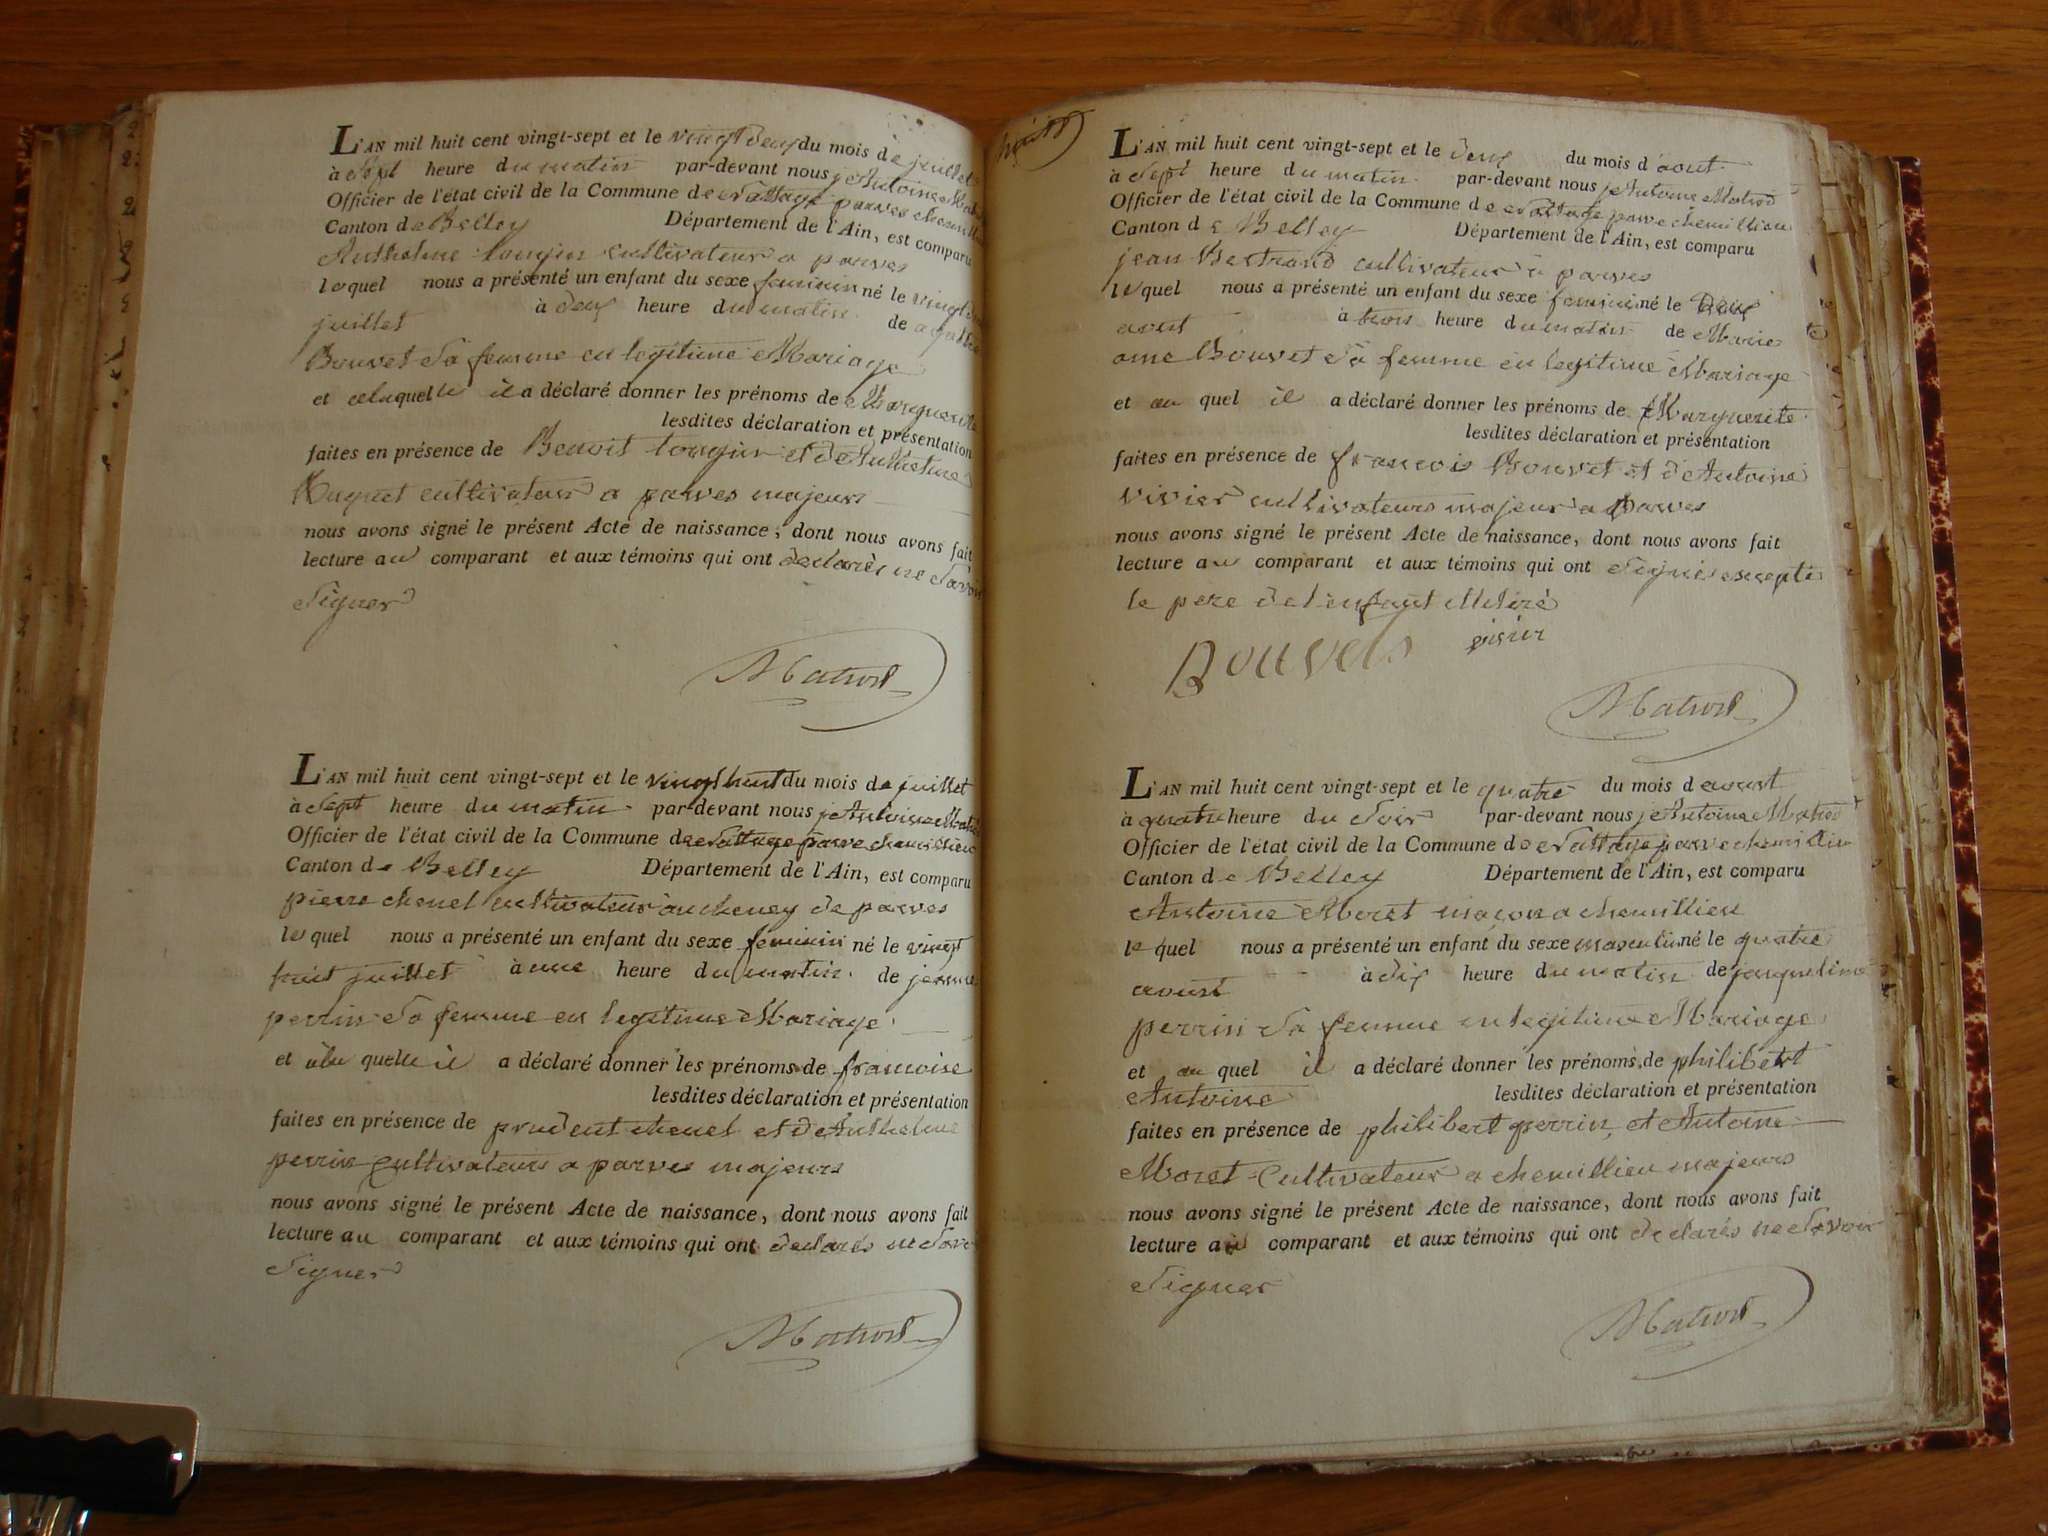 L'AN mil huit cent vingt-sept et le vingt deux du mois de juillet
à sept heure du matin par-devant nous je Antoine
Officier de l'état civil de la Commune de parves
Canton de Belley Département de l'Ain, est comparu
Anthelme cultivateur a parves
lequel nous a présenté un enfant du sexe feminin né le vingt
juillet à deux heure du matin de
Bouvet sa femme en legitime Mariage
et a la quelle il a déclaré donner les prénoms de Marguerite
lesdites déclaration et présentation
faites en présence de Benoit et de Anthelme
cultivateurs a parves majeurs
nous avons signé le présent Acte de naissance, dont nous avons fait
lecture au comparant et aux témoins qui ont declarés ne savoir
signer
L'AN mil huit cent vingt-sept et le vingt huit du mois de juillet
à sept heure du matin par-devant nous je Antoine
Officier de l'état civil de la Commune de parve chemillieu
Canton de Belley Département de l'Ain, est comparu
pierre chenel cultivateur au cheney de parves
lequel nous a présenté un enfant du sexe feminin né le vingt
huit juillet à une heure du matin de jeanne
perrin sa femme en legitime Mariage
et a la quelle il a déclaré donner les prénoms de francoise
lesdites déclaration et présentation
faites en présence de prudent chenel et d'Anthelme
perrin cultivateurs a parves majeurs
nous avons signé le présent Acte de naissance, dont nous avons fait
lecture au comparant et aux témoins qui ont declarés ne savoir
signer
huit
L'AN mil huit cent vingt-sept et le deux du mois d'aout
à sept heure du matin par-devant nous je Antoine
Officier de l'état civil de la Commune de parve chemillieu
Canton de Belley Département de l'Ain, est comparu
jean Bertrand cultivateur à parves
lequel nous a présenté un enfant du sexe feminin né le Deux
aout à trois heure du matin de Marie
anne Bouvet sa femme en legitime Mariage
et au quel il a déclaré donner les prénoms de Marguerite
lesdites déclaration et présentation
faites en présence de francois Bouvet et d'Antoine
vivier cultivateurs majeur a Parves
nous avons signé le présent Acte de naissance, dont nous avons fait
lecture au comparant et aux témoins qui ont signé excepte
le pere de l'enfant illitéré
Bouvet vivier
L'AN mil huit cent vingt-sept et le quatre du mois d'aoust
à quatre heure du soir par-devant nous je Antoine
Officier de l'état civil de la Commune de parve chemillieu
Canton de Belley Département de l'Ain, est comparu
Antoine Moret maçon a chemillieu
lequel nous a présenté un enfant du sexe masculin né le quatre
aoust à dix heure du matin de jaqueline
perrin sa femme en legitime Mariage
et au quel il a déclaré donner les prénoms de philibert
Antoine lesdites déclaration et présentation
faites en présence de philibert perrin et Antoine
Moret Cultivateurs a chemillieu majeurs
nous avons signé le présent Acte de naissance, dont nous avons fait
lecture au comparant et aux témoins qui ont declarés ne savoir
signer